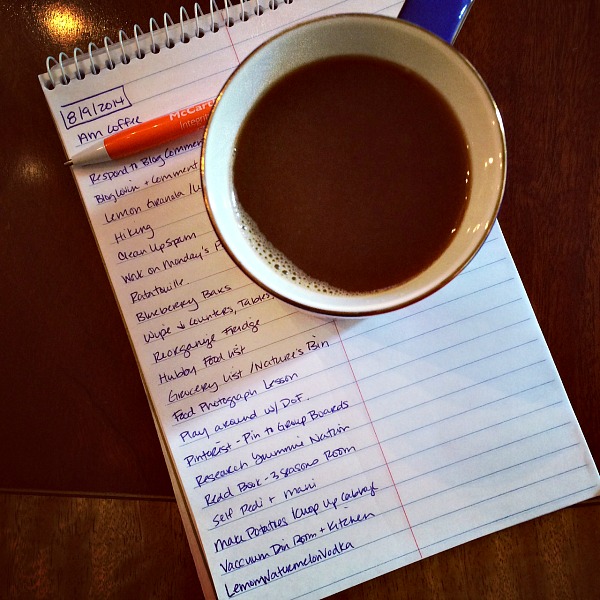 8/9/2014
AM Coffee
McCart
Integrit
Respond to Blog Commen
Bloglovin + Comment
Lemon Granola
Hiking
Clean Up Spam
Work on Monday's
Ratatouille
Blueberry Bars
Wipe ↓ Counters, Tables
Reorganize Fridge
Hubby Food List
Grocery List / Nature's Bin
Food Photograph Lesson
Play around w/ DoF.
Pinterest - Pin to Group Boards
Research Yummie Nation
Read Book - 3 Seasons Room
Self Pedi + Mani
Make Potatoes / Chop Up Cabbage
Vaccuum Din Room + Kitchen
LemonWatermelonVodka